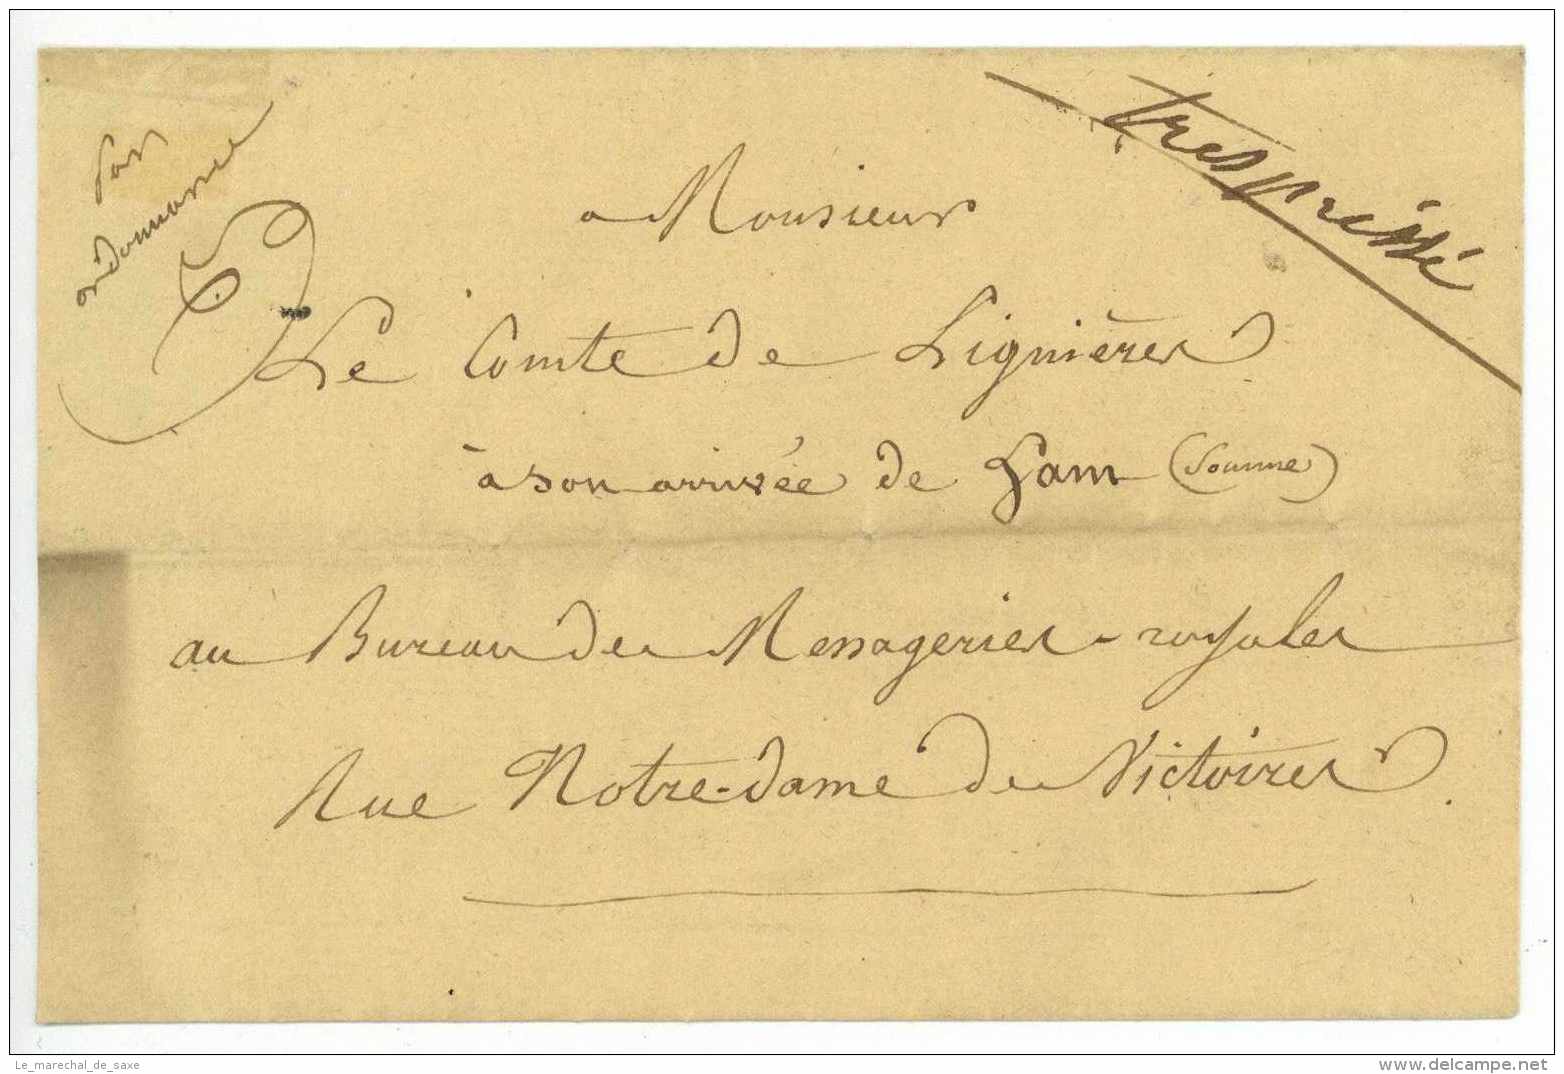 par
ordonnance
très pressé
a Monsieur
Le Comte de Lignières
à son arrivée de Ham (Somme)
au Bureau des Messageries-royales
Rue Notre-dame des Victoires.
Le_marechal_de_saxe
www.delcampe.net